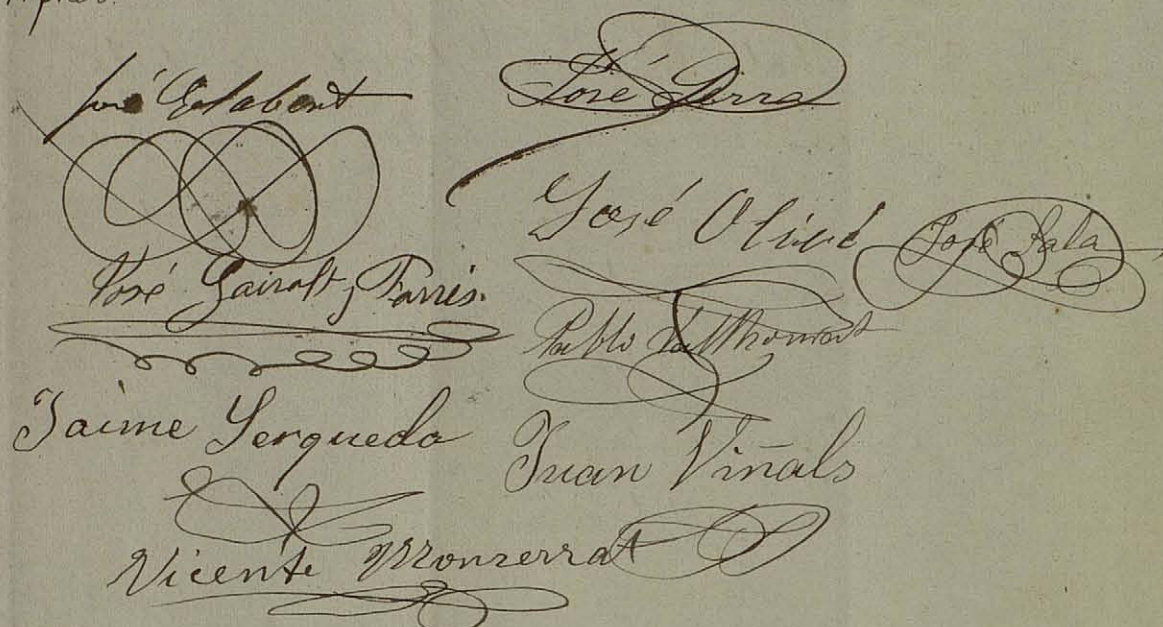 José Gelabert
José Serra
José Olivé
José Sala
José Gairalt y Farrés.
Pablo
Jaime Serqueda
Juan Viñals
Vicente Monzerrat